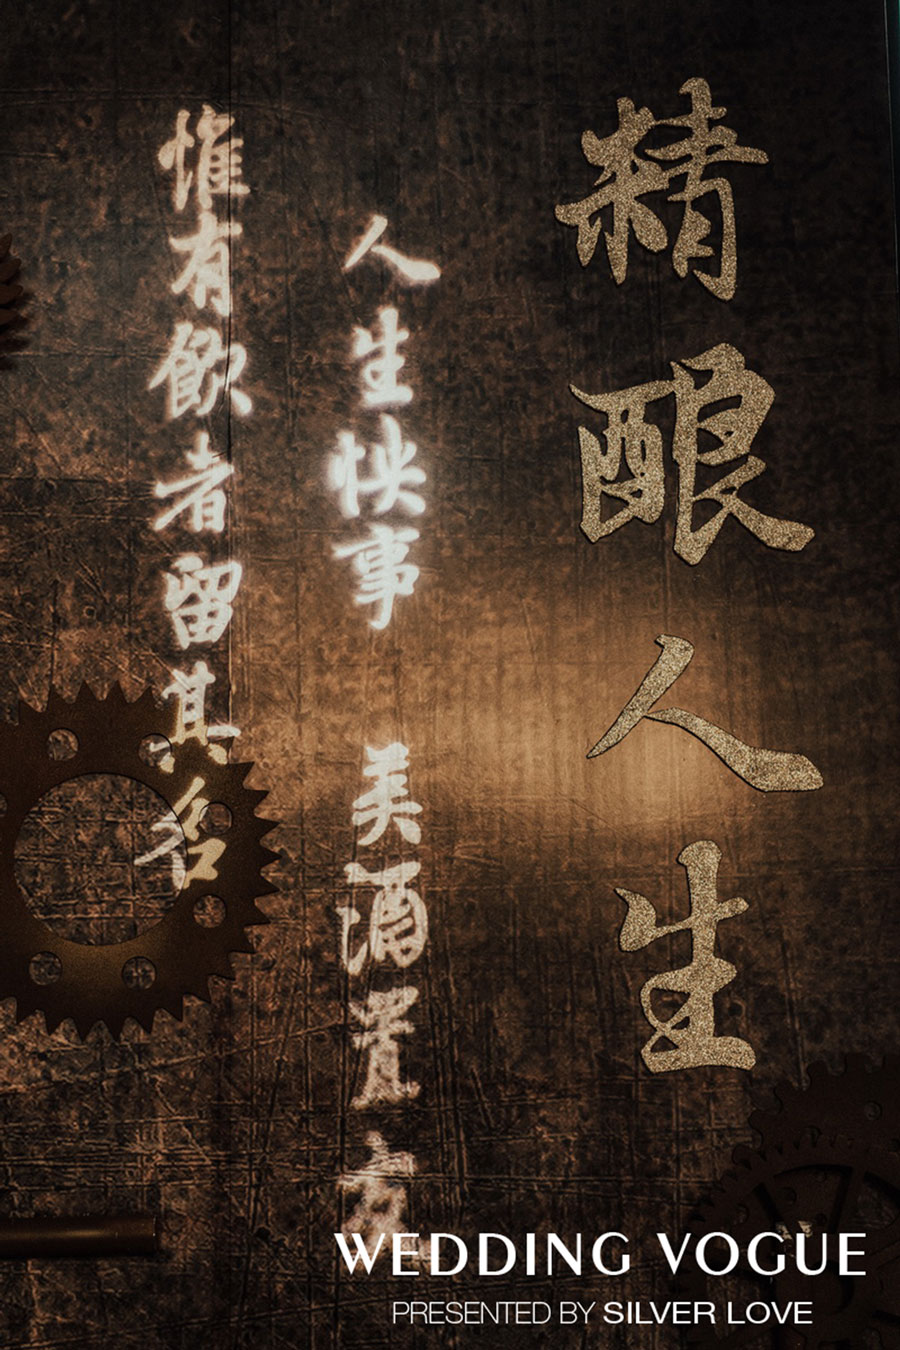 精酿人生
人生快事 美酒置
惟有飲者留其名
WEDDING VOGUE
PRESENTED BY SILVER LOVE